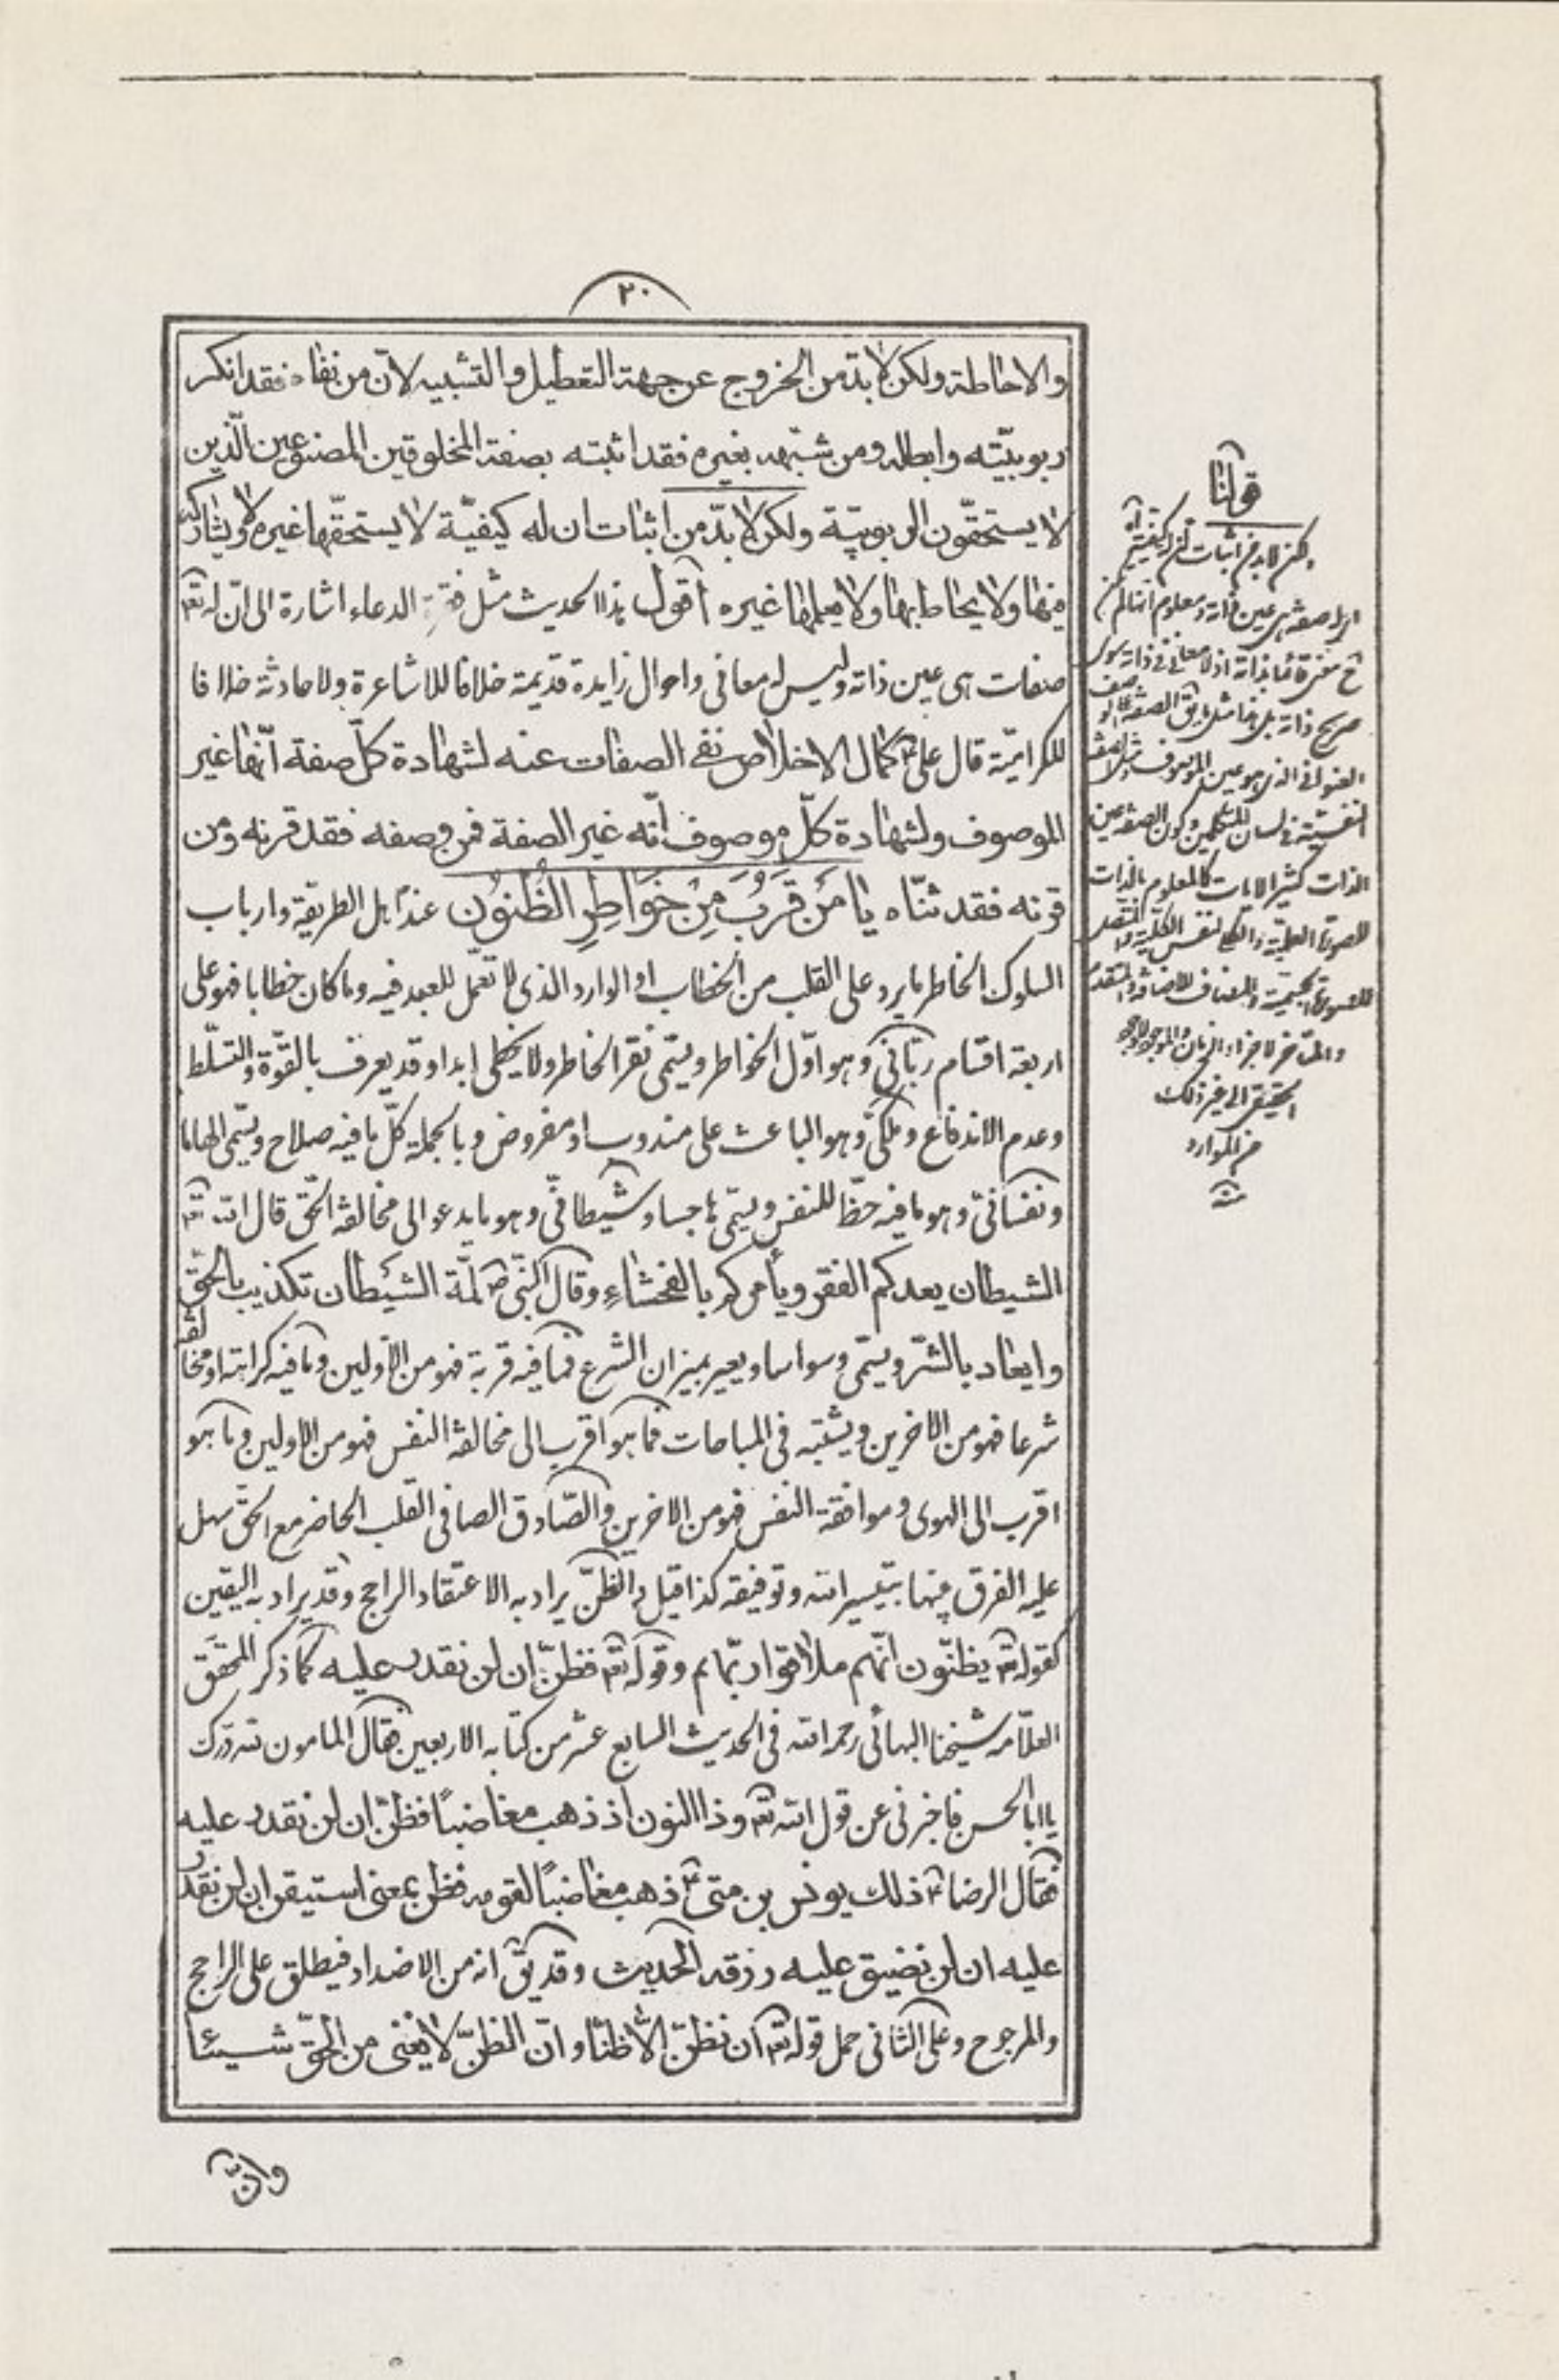 ٢٠
والاحاطة ولكن لا بدّ من الخروج عن جهة التعطيل والتشبيه لانّ من نفاه فقد انكر
ربوبيّته وابطله ومن شبّهه بغيره فقد اثبته بصفة المخلوقين المصنوعين الّذين
لا يستحقّون الربوبيّة ولكن لا بدّ من اثبات ان له كيفيّة لا يستحقّها غيره ولا يشاركه
فيها ولا يحاط بها ولا يعلمها غيره اقول هذا الحديث مثل فقرة الدعاء اشارة الى انّ له تعم
صفات هى عين ذاته وليس له معانى واحوال زايدة قديمة خلافا للاشاعرة ولا حادثة خلافا
للكراميّة قال على ع كمال الاخلاص نفى الصفات عنه لشهادة كلّ صفة انّها غير
الموصوف ولشهادة كلّ موصوف انّه غير الصفة فمن وصفه فقد قرنه ومن
قرنه فقد ثنّاه يا مَن قَرُبَ مِنْ خَواطِرِ الظُّنُون عند اهل الطريقة وارباب
السلوك الخاطر ما يرد على القلب من الخطاب او الوارد الذى لا تعمّل للعبد فيه وما كان خطابا فهو على
اربعة اقسام ربّانى وهو اوّل الخواطر ويسمّى نقر الخاطر ولا يخطى ابدا وقد يعرف بالقوّة والتسلّط
وعدم الاندفاع وملكىّ وهو الباعث على مندوب او مفروض وبالجملة كلّ ما فيه صلاح ويسمّى الهاما
ونفسانىّ وهو ما فيه حظّا للنفس ويسمّى هاجسا وشيطانىّ وهو ما يدعو الى مخالفة الحقّ قال الله تعم
الشيطان يعدكم الفقر ويأمركم بالفحشاء وقال النّبى ص لمّة الشيطان تكذيب بالحقّ
وايعاد بالشرّ ويسمّى وسواسا ويعير بميزان الشرع فما فيه قربة فهو من الاولين وما فيه كراهة او مخالفة
شرعا فهو من الاخرين ويشتبه فى المباحات فما هو اقرب الى مخالفة النفس فهو من الاولين وما هو
اقرب الى الهوى وموافقة النفس فهو من الاخرين والصّادق الصافى القلب الحاضر مع الحقّ سهل
عليه الفرق بينها بتيسير الله وتوفيقه كذا قيل والظنّ يراد به الاعتقاد الراجح وقد يراد به اليقين
كقوله تعم يظنّون انّهم ملاقوا ربّهم وقوله تعم فظنّ ان لن نقدر عليه كما ذكر المحقّق
العلاّمه شيخنا البهائى رحمه الله فى الحديث السابع عشر من كتابه الاربعين فقال المامون لله درّك
يا ابا الحسن فاخبرنى عن قول الله تعم وذا النون اذ ذهب مغاضبًا فظنّ ان لن نقدر عليه
فقال الرضا ع ذلك يونس بن متى ع ذهب مغاضبًا لقومه فظن بمعنى استيقن ان لن نقدر
عليه ان لن نضيق عليه رزقه الحديث وقد يق انه من الاضداد فيطلق على الراجح
والمرجوح وعلى الثانى حمل قوله تعم ان نظنّ الّا ظنّا وانّ الظنّ لا يغنى من الحقّ شيئا
وانّ
قولنا
ولكن لا بد من اثبات ان له كيفيّة اه
اى له صفة هى عين ذاته ومعلوم انها لم تكن
ح معنى قائما بذاته اذ لا معانى فى ذاته سوى
صريح ذاته بل هنا مثل ما يق الصفة على الوصف
العنوانى الذى هو عين الموصوف ومثل الصفة
النفسيّة فى لسان المتكلمين وكون الصفة عين
الذات كثير الايات كالمعلوم بالذات
للصورة العلميّة والكلى لنفس الكلّية والمتصل
للصورة الجسمية والمضاف للاضافة والمتقدم
والمتاخر لاجزاء الزمان والموجود لوجود
الحقيقى الى غير ذلك
من الموارد
منه